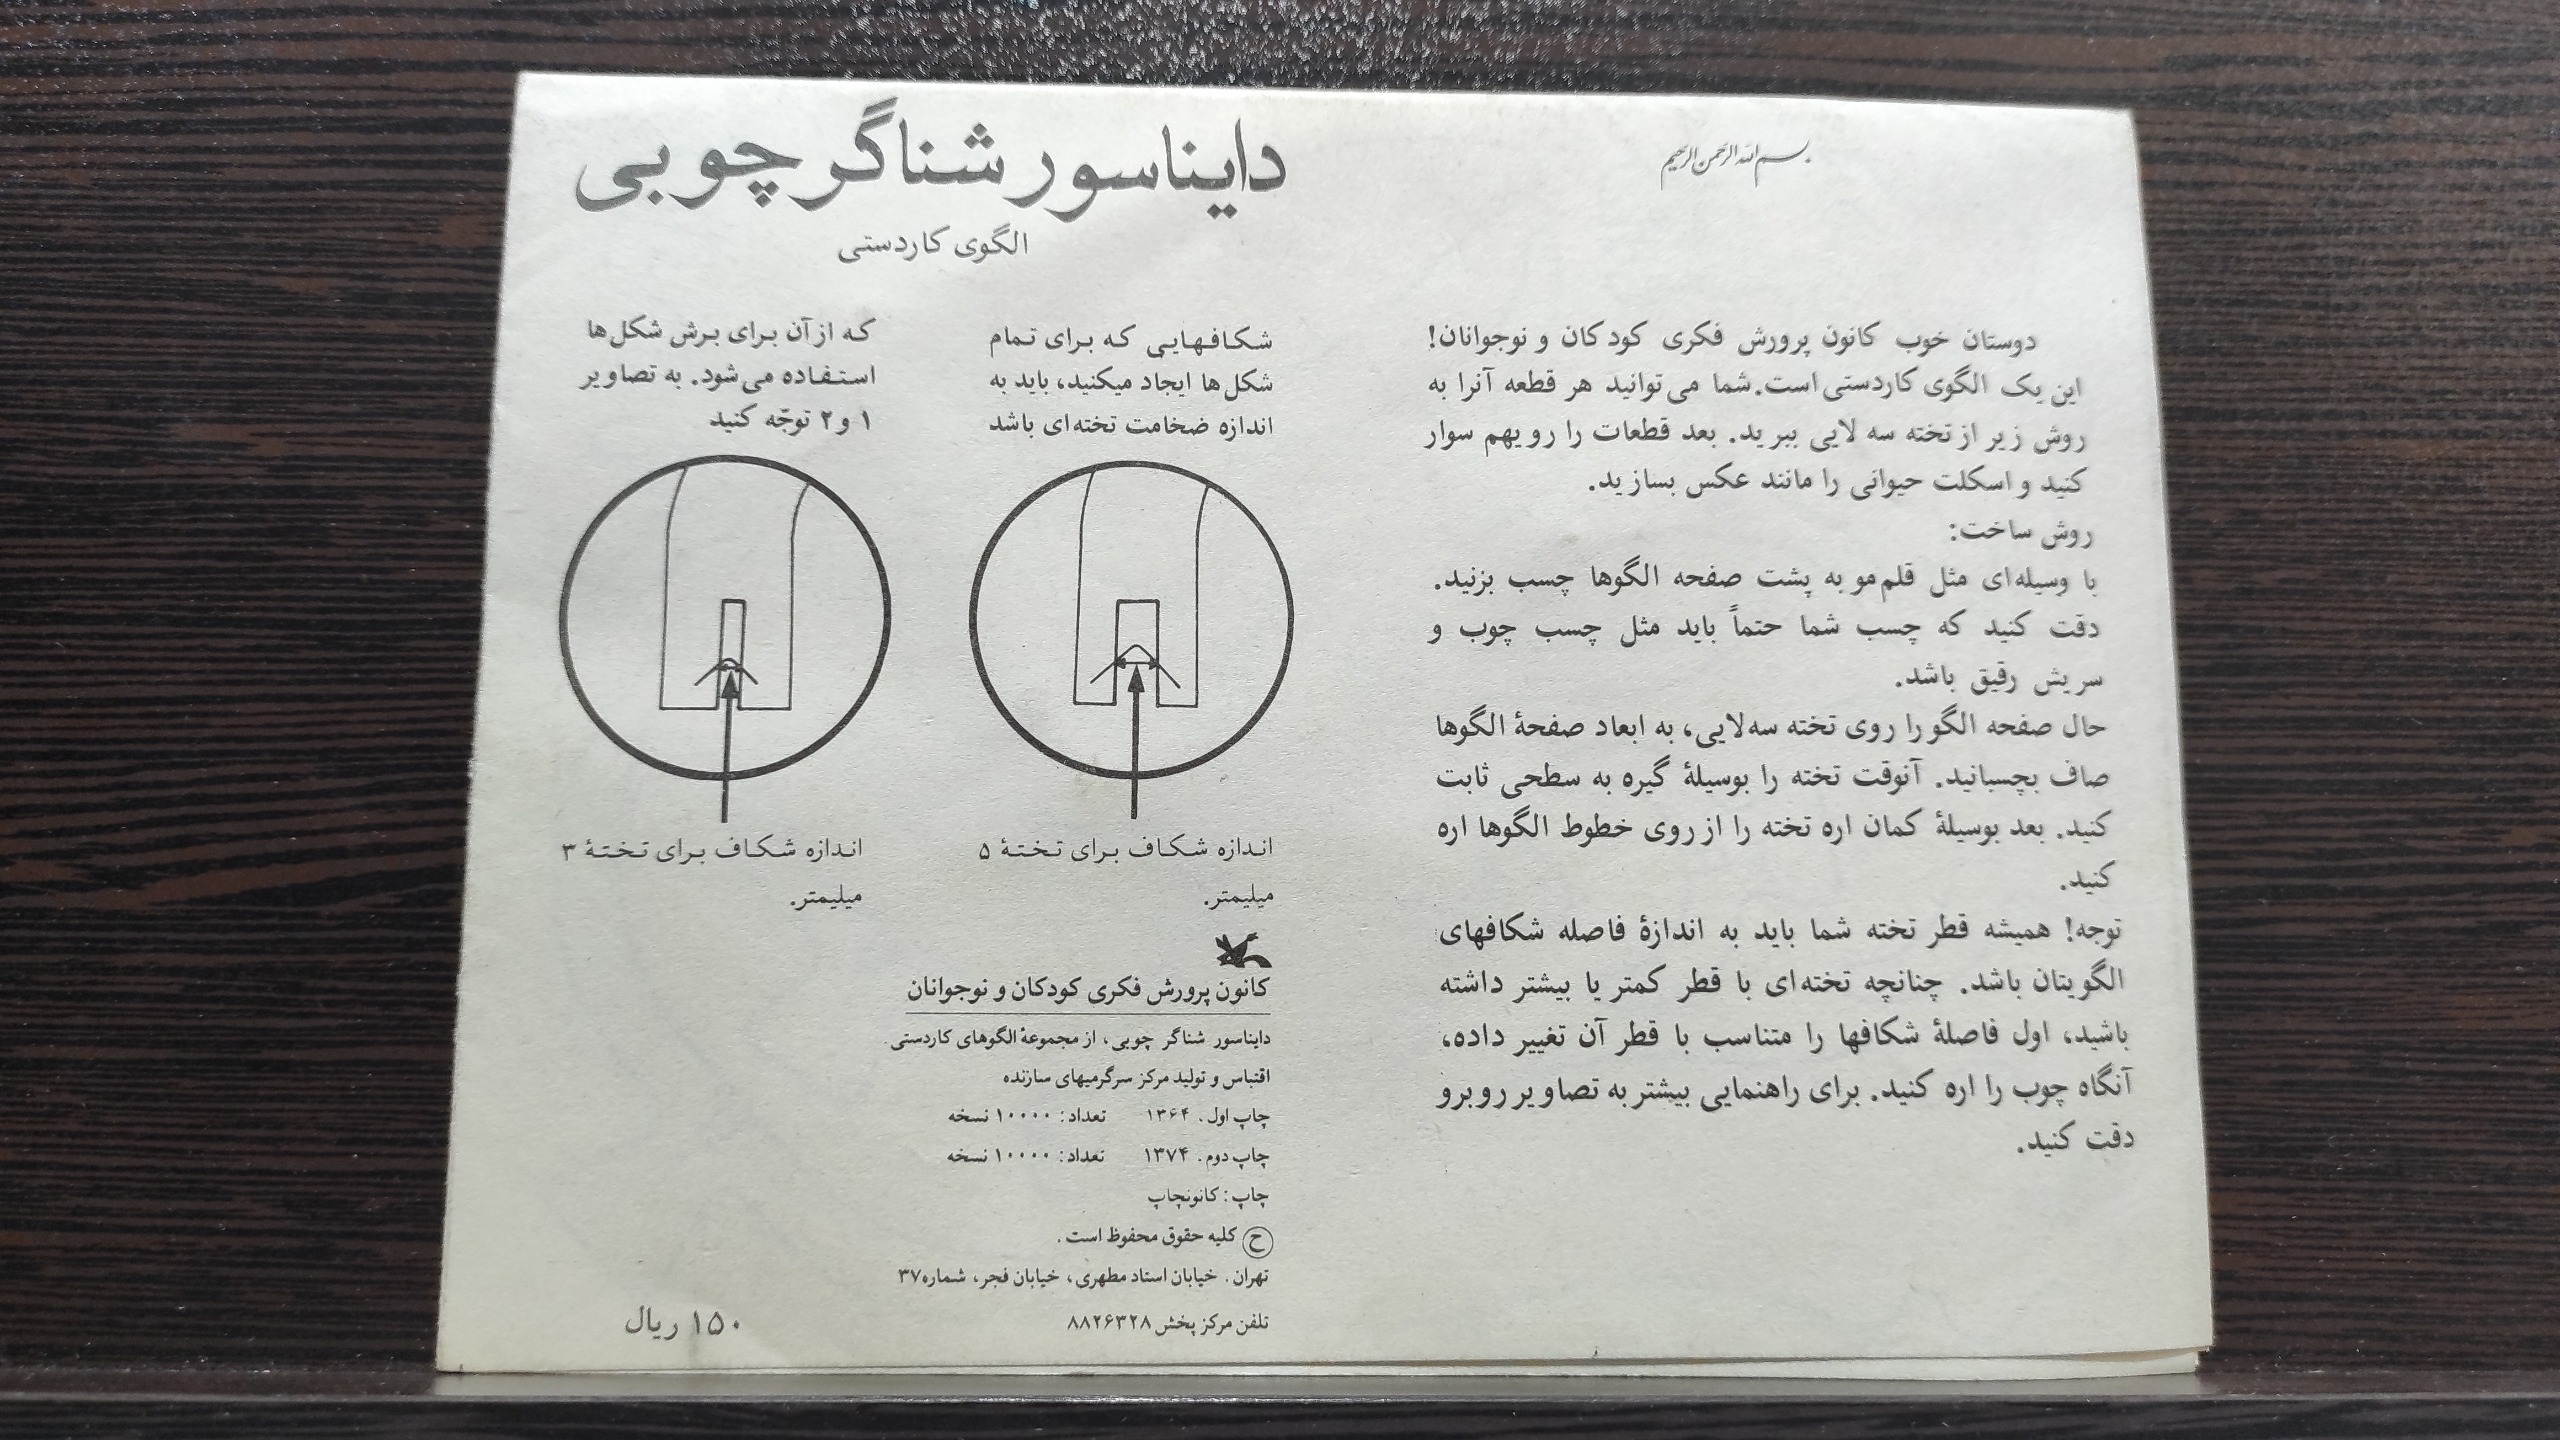 بسم الله الرحمن الرحیم
دوستان خوب کانون پرورش فکری کودکان و نوجوانان!
این یک الگوی کاردستی است. شما می‌توانید هر قطعه آنرا به
روش زیر از تخته سه لایی ببرید. بعد قطعات را رویهم سوار
کنید و اسکلت حیوانی را مانند عکس بسازید.
روش ساخت:
با وسیله‌ای مثل قلم‌مو به پشت صفحه الگوها چسب بزنید.
دقت کنید که چسب شما حتماً باید مثل چسب چوب و
سریش رقیق باشد.
حال صفحه الگو را روی تخته سه‌لایی، به ابعاد صفحهٔ الگوها
صاف بچسبانید. آنوقت تخته را بوسیلهٔ گیره به سطحی ثابت
کنید. بعد بوسیلهٔ کمان اره تخته را از روی خطوط الگوها اره
کنید.
توجه! همیشه قطر تخته شما باید به اندازهٔ فاصله شکافهای
الگویتان باشد. چنانچه تخته‌ای با قطر کمتر یا بیشتر داشته
باشید، اول فاصلهٔ شکافها را متناسب با قطر آن تغییر داده،
آنگاه چوب را اره کنید. برای راهنمایی بیشتر به تصاویر روبرو
دقت کنید.
دایناسور شناگر چوبی
الگوی کاردستی
شکافهایی که برای تمام
شکل‌ها ایجاد میکنید، باید به
اندازه ضخامت تخته‌ای باشد
که از آن برای برش شکل‌ها
استفاده می‌شود. به تصاویر
۱ و ۲ توجّه کنید
اندازه شکاف برای تختهٔ ۵
میلیمتر.
اندازه شکاف برای تختهٔ ۳
میلیمتر.
کانون پرورش فکری کودکان و نوجوانان
دایناسور شناگر چوبی، از مجموعهٔ الگوهای کاردستی.
اقتباس و تولید مرکز سرگرمیهای سازنده
چاپ اول. ۱۳۶۴ تعداد: ۱۰۰۰۰ نسخه
چاپ دوم. ۱۳۷۴ تعداد: ۱۰۰۰۰ نسخه
چاپ: کانونچاپ
ح کلیه حقوق محفوظ است.
تهران. خیابان استاد مطهری، خیابان فجر، شماره ۳۷
تلفن مرکز پخش ۸۸۲۶۳۲۸
۱۵۰ ریال